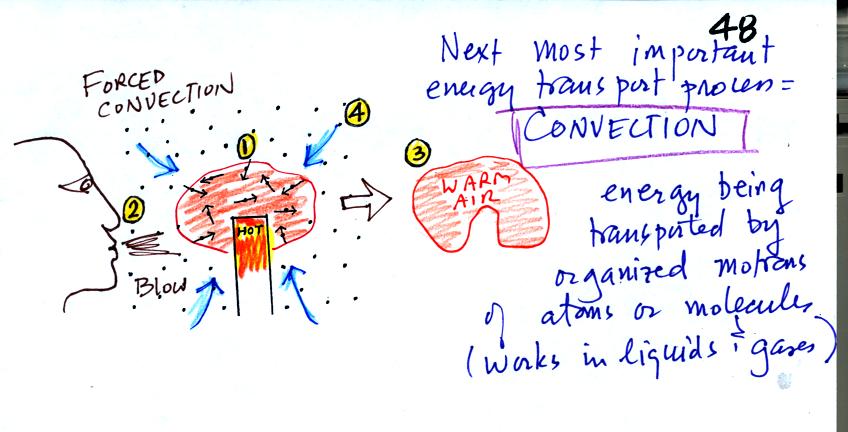 48
Next most important
energy transport process =
CONVECTION
FORCED
CONVECTION
1
4
3
2
WARM
AIR
HOT
BLOW
energy being
transported by
organized motions
of atoms or molecules
(works in liquids & gases)